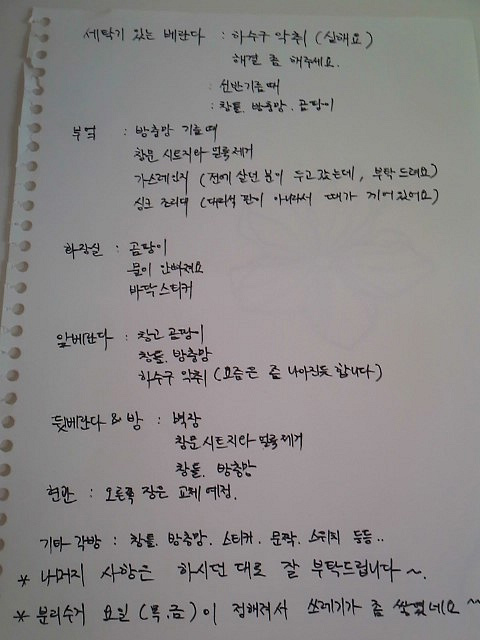 세탁기 있는 베란다 : 하수구 악취 (심해요)
해결 좀 해주세요.
: 선반기름때
: 창틀. 방충망. 곰팡이
부엌 : 방충망 기름때
창문 시트지와 얼룩제거
가스레인지 (전에 살던 분이 두고갔는데, 부탁드려요)
싱크 조리대 (대리석 판이 아니라서 때가 끼어있어요)
화장실 : 곰팡이
물이 안빠져요
바닥스티커
앞베란다 : 창고 곰팡이
창틀. 방충망
하수구 악취 (요즘은 좀 나아진듯 합니다)
뒷베란다 & 방 : 벽장
창문시트지와 얼룩제거
창틀. 방충망
현관 : 오른쪽 장은 교체 예정.
기타 각방 : 창틀. 방충망. 스티커. 문짝. 스위치 등등..
* 나머지 사항은 하시던 대로 잘 부탁드립니다~.
* 분리수거 요일 (목.금)이 정해져서 쓰레기가 좀 쌓였네요~